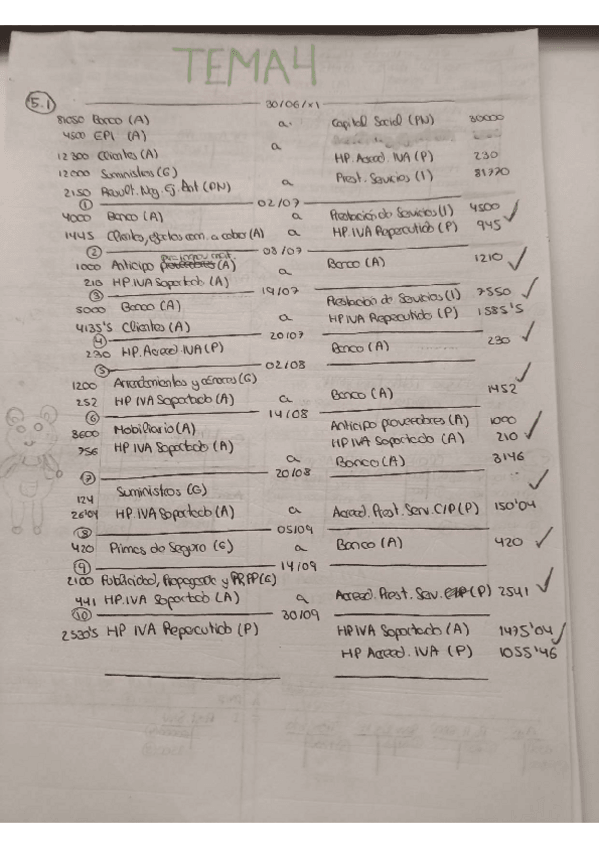 TEMA4
5.1 30/06/x1
81050 Banco (A) a Capital Social (PN) 30000
4500 EPI (A)
12300 Clientes (A) a HP. Acreed. IVA (P) 230
12000 Suministros (G) Prest. Servicios (I) 81770
2150 Result. Neg. Ej. Ant (PN) a
① 02/07
4000 Banco (A) a Prestación de Servicios (I) 4500 ✓
1445 Clientes, efectos com. a cobrar (A) a HP. IVA Repercutido (P) 945
② 08/07
1000 Anticipo (A) a Banco (A) 1210 ✓
210 HP. IVA Soportado (A)
③ 19/07
5000 Banco (A) Prestación de Servicios (I) 7550 ✓
4135'5 Clientes (A) a HP IVA Repercutido (P) 1585'5
④ 20/07
230 HP. Acreed. IVA (P) Banco (A) 230 ✓
⑤ 02/08
1200 Arrendamientos y cánones (G)
252 HP IVA Soportado (A) a Banco (A) 1452 ✓
⑥ 14/08
3600 Mobiliario (A) Anticipo proveedores (A) 1000
756 HP IVA Soportado (A) HP IVA Soportado (A) 210 ✓
a Banco (A) 3146
⑦ 20/08
124 Suministros (G) ✓
26'04 HP. IVA Soportado (A) a Acreed. Prest. Serv. C/P (P) 150'04
⑧ 05/09
420 Primas de Seguro (G) a Banco (A) 420 ✓
⑨ 14/09
2100 Publicidad, Propaganda y RRPP (G)
441 HP. IVA Soportado (A) a Acreed. Prest. Serv. C/P (P) 2541 ✓
⑩ 30/09
2530'5 HP IVA Repercutido (P) HP IVA Soportado (A) 1475'04 ✓
HP Acreed. IVA (P) 1055'46